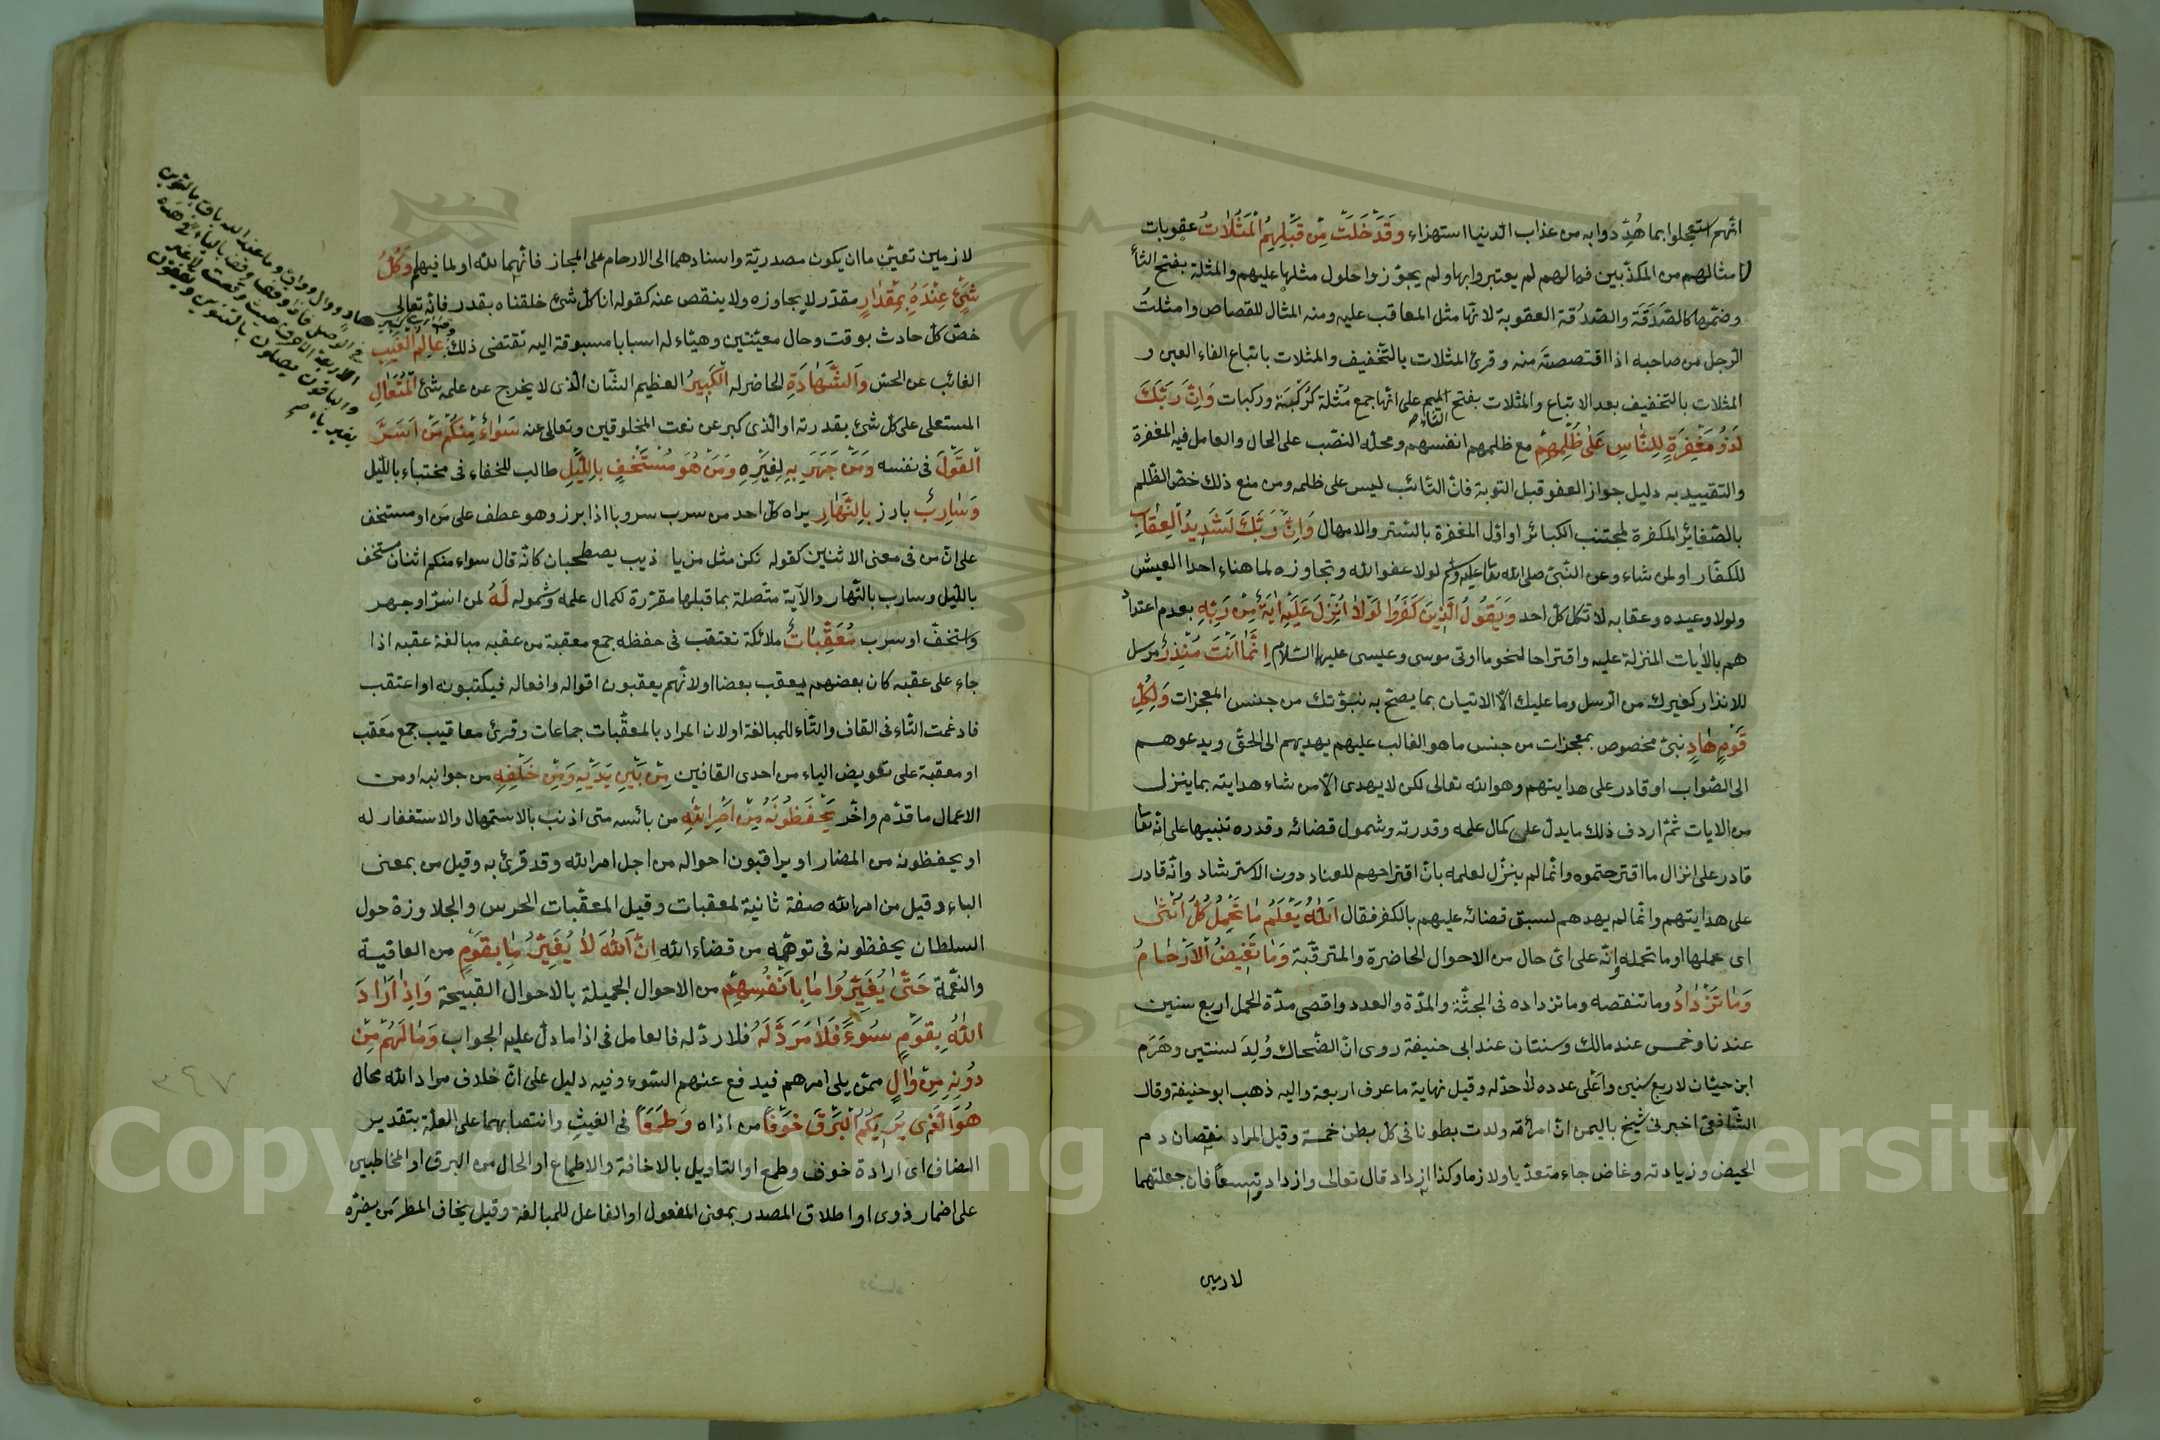 انهم استعجلوا بما هُدِّدوا به من عذاب الدنيا استهزاء وَقَدْ خَلَتْ مِنْ قَبْلِهِمُ الْمَثُلَاتُ عقوبات
لامثالهم من المكذبين فما لهم لم يعتبروا بها ولم يجوّزوا حلول مثلها عليهم والمثلة بفتح الثاء
وضمّها كالصَّدَقَة والصَّدُقة العقوبة لانها مثل المعاقب عليه ومنه المثال للقصاص وامثلتُ
الرجل من صاحبه اذا اقتصصتَه منه وقرئ المثلات بالتخفيف والمثلات باتباع الفاء العين و
المثلات بالتخفيف بعد الاتباع والمثلات بفتح الثاء على انها جمع مُثْلة كرُكْبة وركبات وَاِنَّ رَبَّكَ
لَذُو مَغْفِرَةٍ لِلنَّاسِ عَلٰى ظُلْمِهِمْ مع ظلمهم انفسهم ومحله النصب على الحال والعامل فيه المغفرة
والتقييد به دليل جواز العفو قبل التوبة فان التائب ليس على ظلمه ومن منع ذلك خص الظلم
بالصغائر المكفرة لمجتنب الكبائر او اوّل المغفرة بالستر والامهال وَاِنَّ رَبَّكَ لَشَدِيدُ الْعِقَابِ
للكفّار او لمن شاء وعن النبيّ صلى الله تعا عليه وسلم لولا عفو الله وتجاوزه لما هناء احدا العيش
ولولا وعيده وعقابه لاتّكل كل احد وَيَقُولُ الَّذِينَ كَفَرُوا لَوْلَا اُنْزِلَ عَلَيْهِ اٰيَةٌ مِنْ رَبِّهِ بعدم اعتدا
هم بالآيات المنزلة عليه واقتراحا لنحو ما اوتى موسى وعيسى عليهما السّلام اِنَّمَا اَنْتَ مُنْذِرٌ مرسل
للانذار كغيرك من الرسل وما عليك الّا الاتيان بما يصحّ به نبوّتك من جنس المعجزات وَلِكُلِّ
قَوْمٍ هَادٍ نبىّ مخصوص بمعجزات من جنس ما هو الغالب عليهم يهديهم الى الحقّ ويدعوهم
الى الصّواب او قادر على هدايتهم وهو الله تعالى لكن لا يهدى الّا من شاء هدايته بما ينزل
من الايات ثمّ اردف ذلك ما يدلّ على كمال علمه وقدرته وشمول قضائه وقدره تنبيها على انه تعا
قادر على انزال ما اقترحتموه وانّما لم ينزّل لعلمه بانّ اقتراحهم للعناد دون الاسترشاد وانّه قادر
على هدايتهم وانّما لم يهدهم لسبق قضائه عليهم بالكفر فقال اَللّٰهُ يَعْلَمُ مَا تَحْمِلُ كُلُّ اُنْثٰى
اى حملها او ما تحمله وانّه على اىّ حال من الاحوال الحاضرة والمترقّبة وَمَا تَغِيضُ الْاَرْحَامُ
وَمَا تَزْدَادُ وما تنقصه وما تزداده فى الجثّة والمدّة والعدد واقصى مدّة الحمل اربع سنين
عندنا وخمس عند مالك وسنتان عند ابى حنيفة روى انّ الضّحاك وُلِدَ لسنتين وهَرَم
ابن حيّان لاربع سنين واعلى عدده لا حدّ له وقيل نهاية ما عرف اربعة واليه ذهب ابو حنيفة وقال
الشّافعىّ اخبرنى شيخ باليمن انّ امرأته ولدت بطونا فى كلّ بطن خمسة وقيل المراد نقصان دم
الحيض وزيادته وغاض جاء متعدّيا ولازما وكذا ازداد قال تعالى وازدادوا تسعاً فان جعلتهما
لازمين
لازمين تعيّن ما ان يكون مصدريّة واسنادهما الى الارحام على المجاز فانّهما لله او لما فيها وَكُلُّ
شَيْءٍ عِنْدَهُ بِمِقْدَارٍ مقدّر لا يجاوزه ولا ينقص عنه كقوله انا كلّ شئ خلقناه بقدر فانّه تعالى
خصّ كلّ حادث بوقت وحال معيّنتين وهيّاء له اسبابا مسبوقة اليه تقتضى ذلك عَالِمُ الْغَيْبِ
الغائب عن الحسّ وَالشَّهَادَةِ الحاضر له اَلْكَبِيرُ العظيم الشّأن الّذى لا يخرج عن علمه شئ اَلْمُتَعَالِ
المستعلى على كلّ شئ بقدرته او الّذى كبر عن نعت المخلوقين وتعالى عنه سَوَاءٌ مِنْكُمْ مَنْ اَسَرَّ
الْقَوْلَ فى نفسه وَمَنْ جَهَرَ بِهِ لِغيره وَمَنْ هُوَ مُسْتَخْفٍ بِاللَّيْلِ طالب للخفاء فى مختباء بالليل
وَسَارِبٌ بارز بِالنَّهَارِ يراه كلّ احد من سرب سروبا اذا برز وهو عطف على مَن او مستخف
على انّ من فى معنى الاثنين كقوله نكن مثل من يا ذيب يصطحبان كانّه قال سواء منكم اثنان مستخف
بالليل وسارب بالنّهار والآية متّصلة بما قبلها مقرّرة لكمال علمه وشموله لَهُ لمن اسرّ او جهر
واستخفى او سرب مُعَقِّبَاتٌ ملائكة تعتقب فى حفظه جمع معقبة من عقبه مبالغة عقبه اذا
جاء على عقبه كان بعضهم يعقب بعضا او لانّهم يعقبون اقواله وافعاله فيكتبونه او اعتقب
فادغمت التّاء فى القاف والتّاء للمبالغة او لان المراد بالمعقّبات جماعات وقرئ معاقيب جمع معقب
او معقبة على تعويض الياء من احدى القافين مِنْ بَيْنِ يَدَيْهِ وَمِنْ خَلْفِهِ من جوانبه او من
الاعمال ما قدّم واخّر يَحْفَظُونَهُ مِنْ اَمْرِ اللّٰهِ من بأسه متى اذنب بالاستمهال والاستغفار له
او يحفظونه من المضار او يراقبون احواله من اجل امر الله وقد قرئ به وقيل من بمعنى
الباء وقيل من امر الله صفة ثانية لمعقبات وقيل المعقّبات الحرس والجلاوزة حول
السلطان يحفظونه فى توهّمه من قضاء الله اِنَّ اللّٰهَ لَا يُغَيِّرُ مَا بِقَوْمٍ من العافية
والنّعمة حَتّٰى يُغَيِّرُوا مَا بِاَنْفُسِهِمْ من الاحوال الجميلة بالاحوال القبيحة وَاِذَا اَرَادَ
اللّٰهُ بِقَوْمٍ سُوءًا فَلَا مَرَدَّ لَهُ فلا ردّ له فالعامل فى اذا ما دلّ عليه الجواب وَمَا لَهُمْ مِنْ
دُونِهِ مِنْ وَالٍ ممّن يلى امرهم فيدفع عنهم السّوء وفيه دليل على انّ خلاف مراد الله محال
هُوَ الَّذِى يُرِيكُمُ الْبَرْقَ خَوْفًا من اذاه وَطَمَعًا فى الغيث وانتصابهما على العلّة بتقدير
المضاف اى ارادة خوف وطمع او التأويل بالاخافة والاطماع او الحال من البرق او المخاطبين
على اضمار ذوى او اطلاق المصدر بمعنى المفعول او الفاعل للمبالغة وقيل يخاف المطر من يضرّه
هاد ووال وواق وما عند الله باق بالتنوين
فى الوصل فاذا وقف وقف بالياء فى هذه
الاربعة الاحرف حيث وقعت لا غير
والباقون يصلون بالتنوين ويقفون
بغير ياء
٣٤٧
Copyright © King Saud University
1957